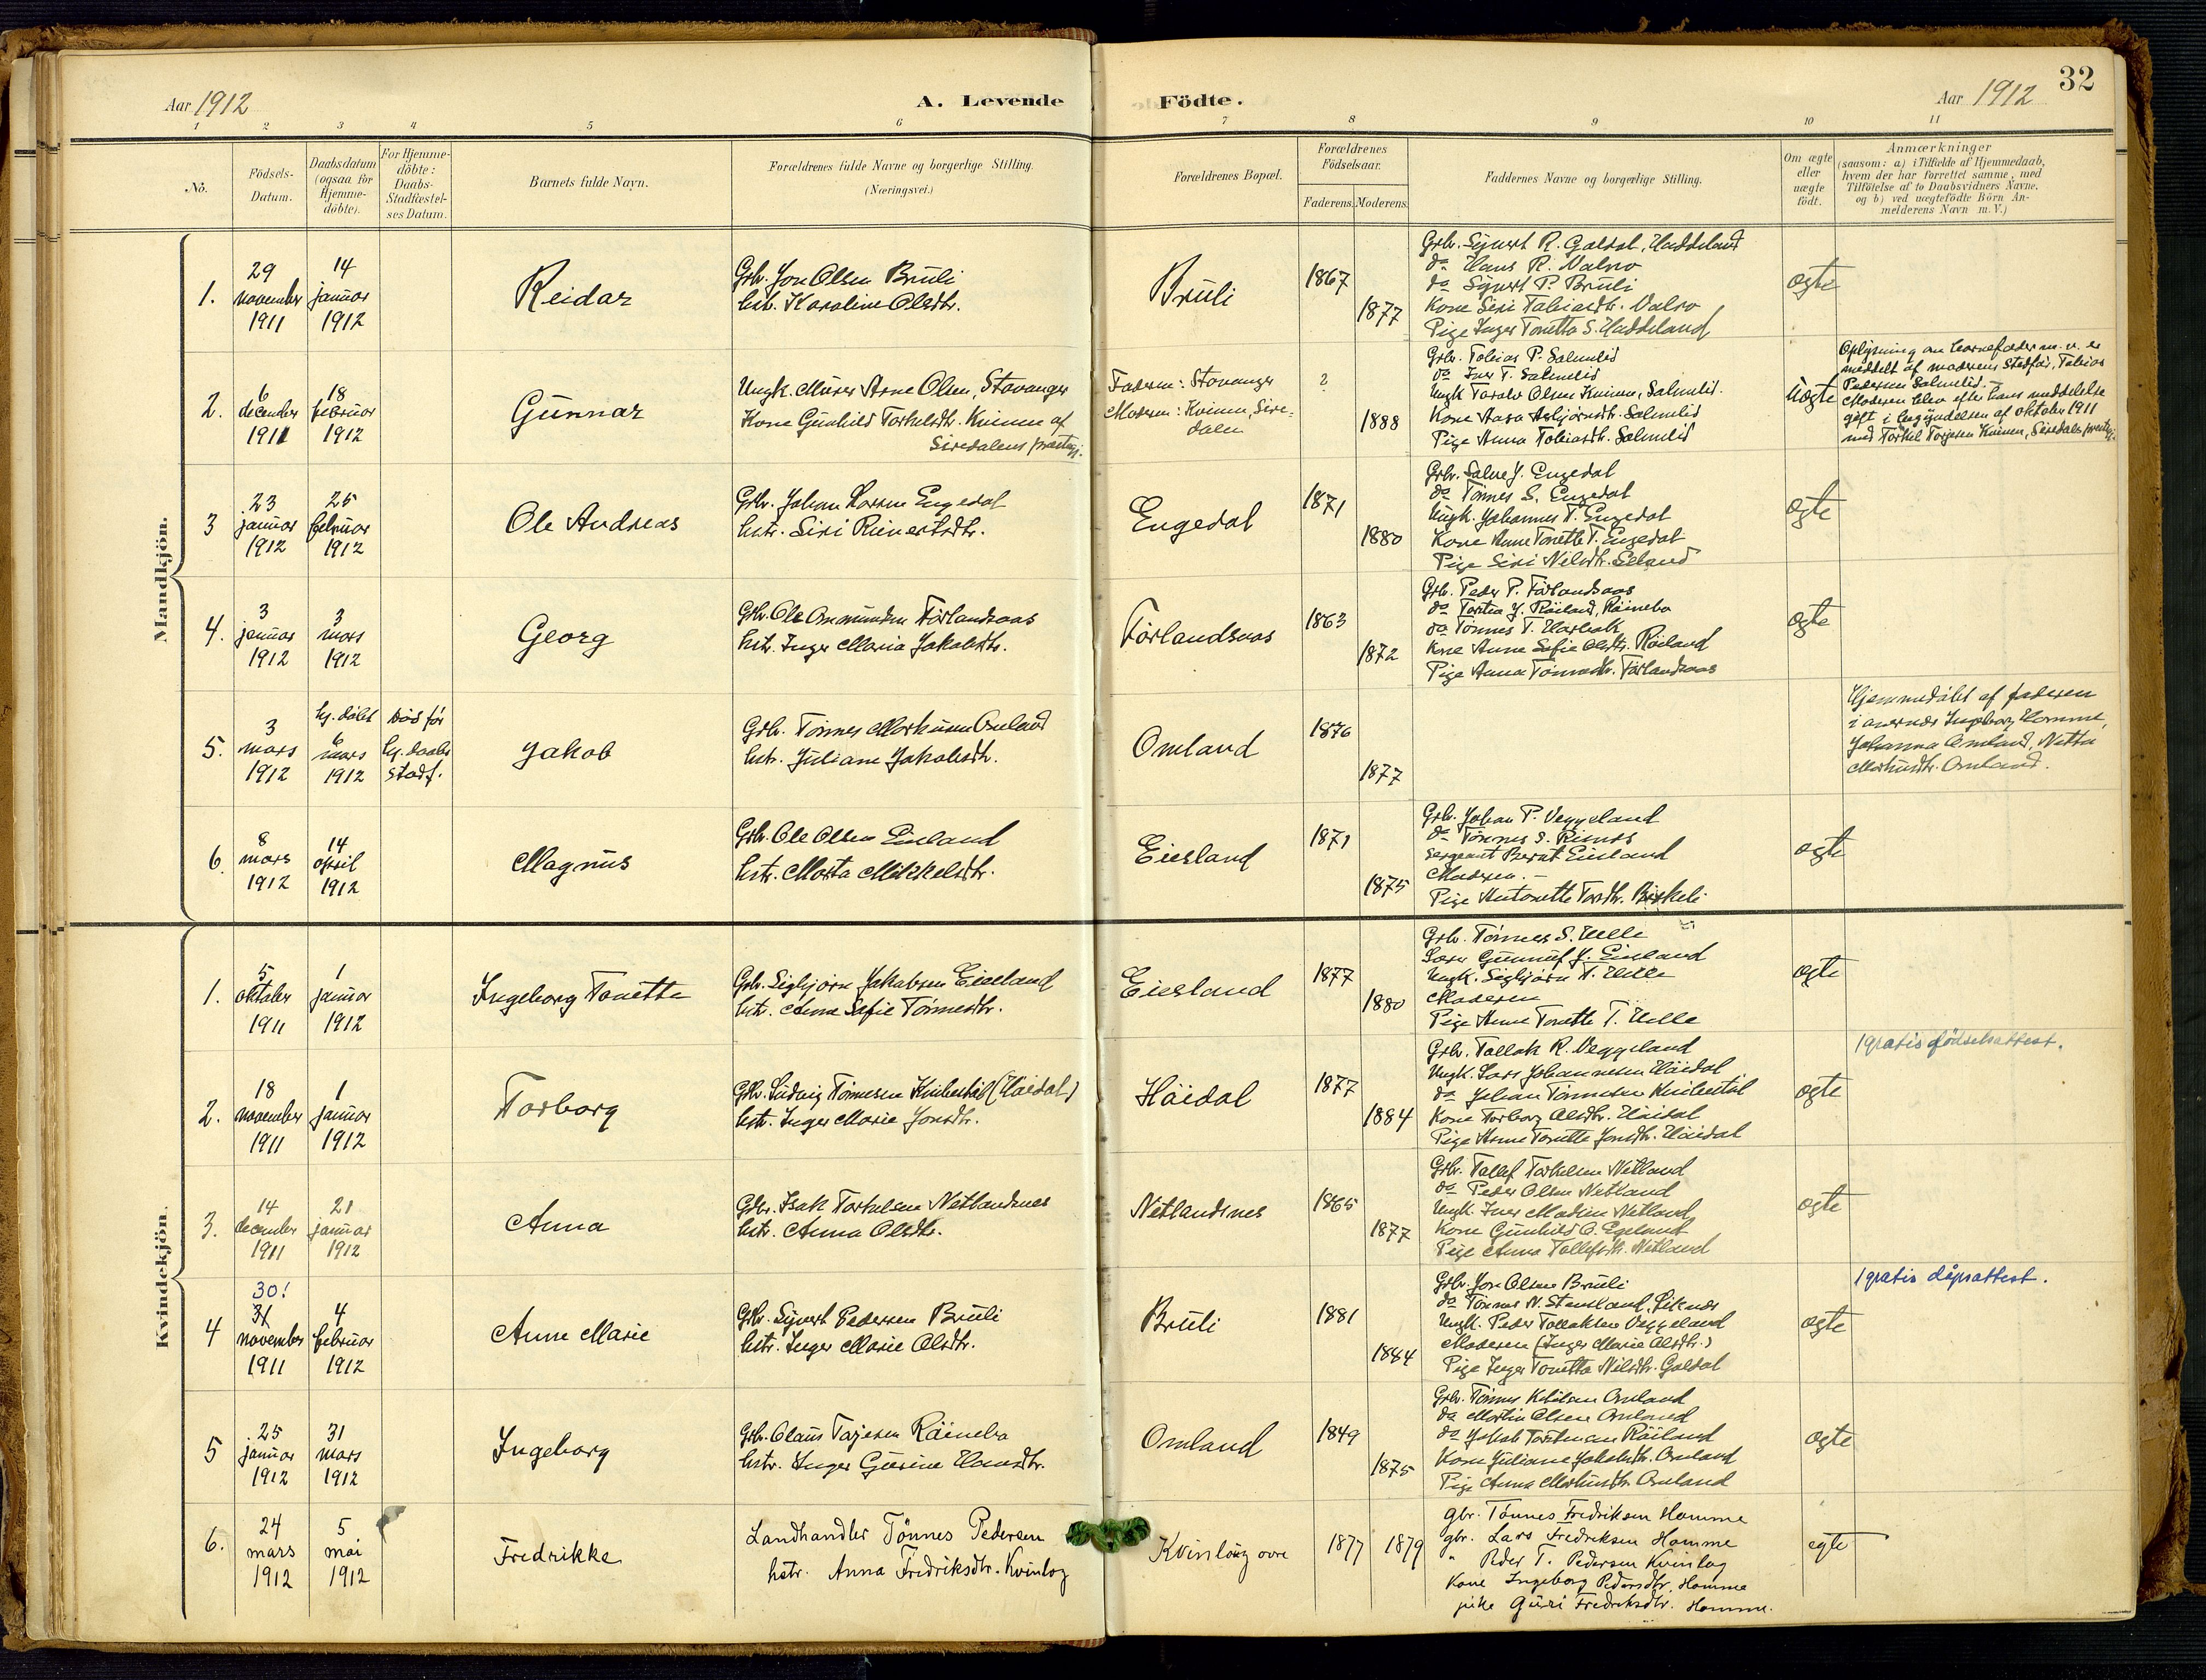 Aar 1912
A. Levende Födte.
Aar 1912
32
1 2 3 4 5 6 7 8 9 10 11
No.
Födsels-
Datum.
Daabsdatum
(ogsaa for
Hjemme-
döbte).
For Hjemme-
döbte:
Daabs-
Stadfæstel-
ses Datum.
Barnets fulde Navn.
Forældrenes fulde Navne og borgerlige Stilling.
(Næringsvei.)
Forældrenes Bopæl.
Forældrenes
Födselsaar.
Faderens.
Moderens.
Faddernes Navne og borgerlige Stilling.
Om ægte
eller
uægte
födt.
Anmærkninger
(saasom: a) i Tilfælde af Hjemmedaab,
hvem der har forrettet samme, med
Tilföielse af to Daabsvidners Navne,
og b) ved uægtefödte Börn An-
melderens Navn m. V.)
Mandkjön.
1.
29
november
1911
14
januar
1912
Reidar
Grbr. Jon Olsen Bruli
hstr. Karoline Olsdtr.
Bruli
1867
1877
Grbr. Sijvert R. Galdal, Haddeland
do Hans R. Valvo
do Sijvert P. Bruli
Kone Siri Tobiasdtr. Valvo
Pige Inger Tonetta S. Haddeland
ægte
2.
6
december
1911
18
februar
1912
Gunnar
Ungk. Murer Arne Olsen, Stavanger
Kone Gunhild Torkelsdtr. Kvinen af
Siredalens prestegj.
Faderen: Stavanger
Moderen: Kvinen, Sire-
dalen
?
1888
Grbr. Tobias P. Salmelid
do Iver T. Salmelid
Ungk Taralv Olsen Kvinen, Salmelid.
Kone Aasa Asbjørnsdtr. Salmelid
Pige Anna Tobiasdtr. Salmelid
Uægte
Oplysning om barnefader m. v. er
meddelt af moderens Stedfar, Tobias
Pedersen Salmelid. -
Moderen blev efter hans meddelelse
gift i begyndelsen af oktober 1911
med Torkel Torjesen Kvinen, Siredals prestegj.
3
23
januar
1912
25
februar
1912
Ole Andreas
Grbr. Johan Larsen Engedal
hstr. Siri Reinertsdtr.
Engedal
1871
1880
Grbr. Salve J. Engedal
do Tönnes S. Engedal
Ungk. Johannes T. Engedal
Kone Anne Tonette T. Engedal
Pige Siri Nilsdtr. Eeland
ægte
4.
3
januar
1912
3
mars
1912
Georg
Grbr. Ole Ommundsen Förlandsaas
hstr. Inger Maria Jakobsdtr.
Förlandsaas
1863
1872
Grbr. Peder P. Förlandsaas
do Tostea J. Röiland, Räinebo
do Tönnes T.
Kone Anne Sofie Olsdtr. Röiland
Pige Anna Tönnesdtr. Förlandsaas
ægte
5.
3
mars
1912
hj. döbt
6
mars
1912
död för
hj. daabs
stadf.
Jakob
Grbr. Tönnes Markusen Omland
hstr. Juliane Jakobsdtr.
Omland
1876
1877
Hjemmedöbt af faderen
i nærvær Ingeborg Homme,
Johanna Omland, Netta
Markusdtr. Omland.
6
8
mars
1912
14
april
1912
Magnus
Grbr. Ole Olsen Eiesland
hstr. Marta Mikkelsdtr.
Eiesland
1871
1875
Grbr. Johan P. Veggeland
do Tönnes S. Risnes
Sergeant Bernt Eiesland
Moderen. -
Pige Antonette Tordtr. Birkeli
ægte
Kvindekjön.
1.
5
oktober
1911
1
januar
1912
Ingeborg Tonette
Grbr. Sigbjörn Jakobsen Eiesland
hstr. Anne Sofie Tönnesdtr.
Eiesland
1877
1880
Grbr. Tönnes S. Helle
Gunnuf J. Eiesland
Ungk. Sigbjörn T. Helle
Moderen
Pige Anne Tonette T. Helle
ægte
2.
18
november
1911
1
januar
1912
Torborg
Grbr. Ludvig Tönnesen Knibestöl (Höidal)
hstr. Inger Marie Jonsdtr.
Höidal
1877
1884
Grbr. Tallak R. Veggeland
Ungk. Lars Johannesen Höidal
do Johan Tönnesen Knibestöl
Kone Torborg Olsdtr. Höidal
Pige Anne Tonette Jonsdtr. Höidal
ægte
1 gratis födselsattest.
3.
14
december
1911
21
januar
1912
Anna
Grbr. Isak Torkelsen Netlandsnes
hstr. Anna Olsdtr.
Netlandsnes
1865
1877
Grbr. Tallef Torkelsen Netland
do Peder Olsen Netland
Ungk. Iver Madsen Netland
Kone Gunhild O. Egeland
Pige Anna Tallefsdtr. Netland
ægte
4
30!
31
november
1911
4
februar
1912
Anne Marie
Grbr. Sijvert Pedersen Bruli
hstr. Inger Marie Olsdtr.
Bruli
1881
1884
Grbr. Jon Olsen Bruli
do Tönnes N. Stensland, Fiknes
Ungk. Peder Tallaksen Veggeland
Moderen (Inger Marie Olsdtr.)
Pige Inger Tonetta Nilsdtr. Galdal
ægte
1 gratis dåpsattest.
5
25
januar
1912
31
mars
1912
Ingeborg
Grbr. Olaus Tarjesen Räinebo
hstr. Inger Gurine Hansdtr.
Omland
1849
1875
Grbr. Tönnes Ketilsen Omland
do Martin Olsen Omland
do Jakob Torkelsen Röiland
Kone Juliane Jakobsdtr. Omland
Pige Anna Markusdtr. Omland
ægte
6.
24
mars
1912
5
mai
1912
Fredrikke
Landhandler Tönnes Pedersen
hstr. Anna Fredriksdtr. Kvinlog
Kvinlaug øvre
1877
1879
gbr. Tønnes Fredriksen Homme
gbr. Lars Fredriksen Homme
" Peder T. Pedersen Kvinlog
Kone Ingeborg Pedersdtr. Homme
pike Guri Fredriksdtr. Homme.
egte